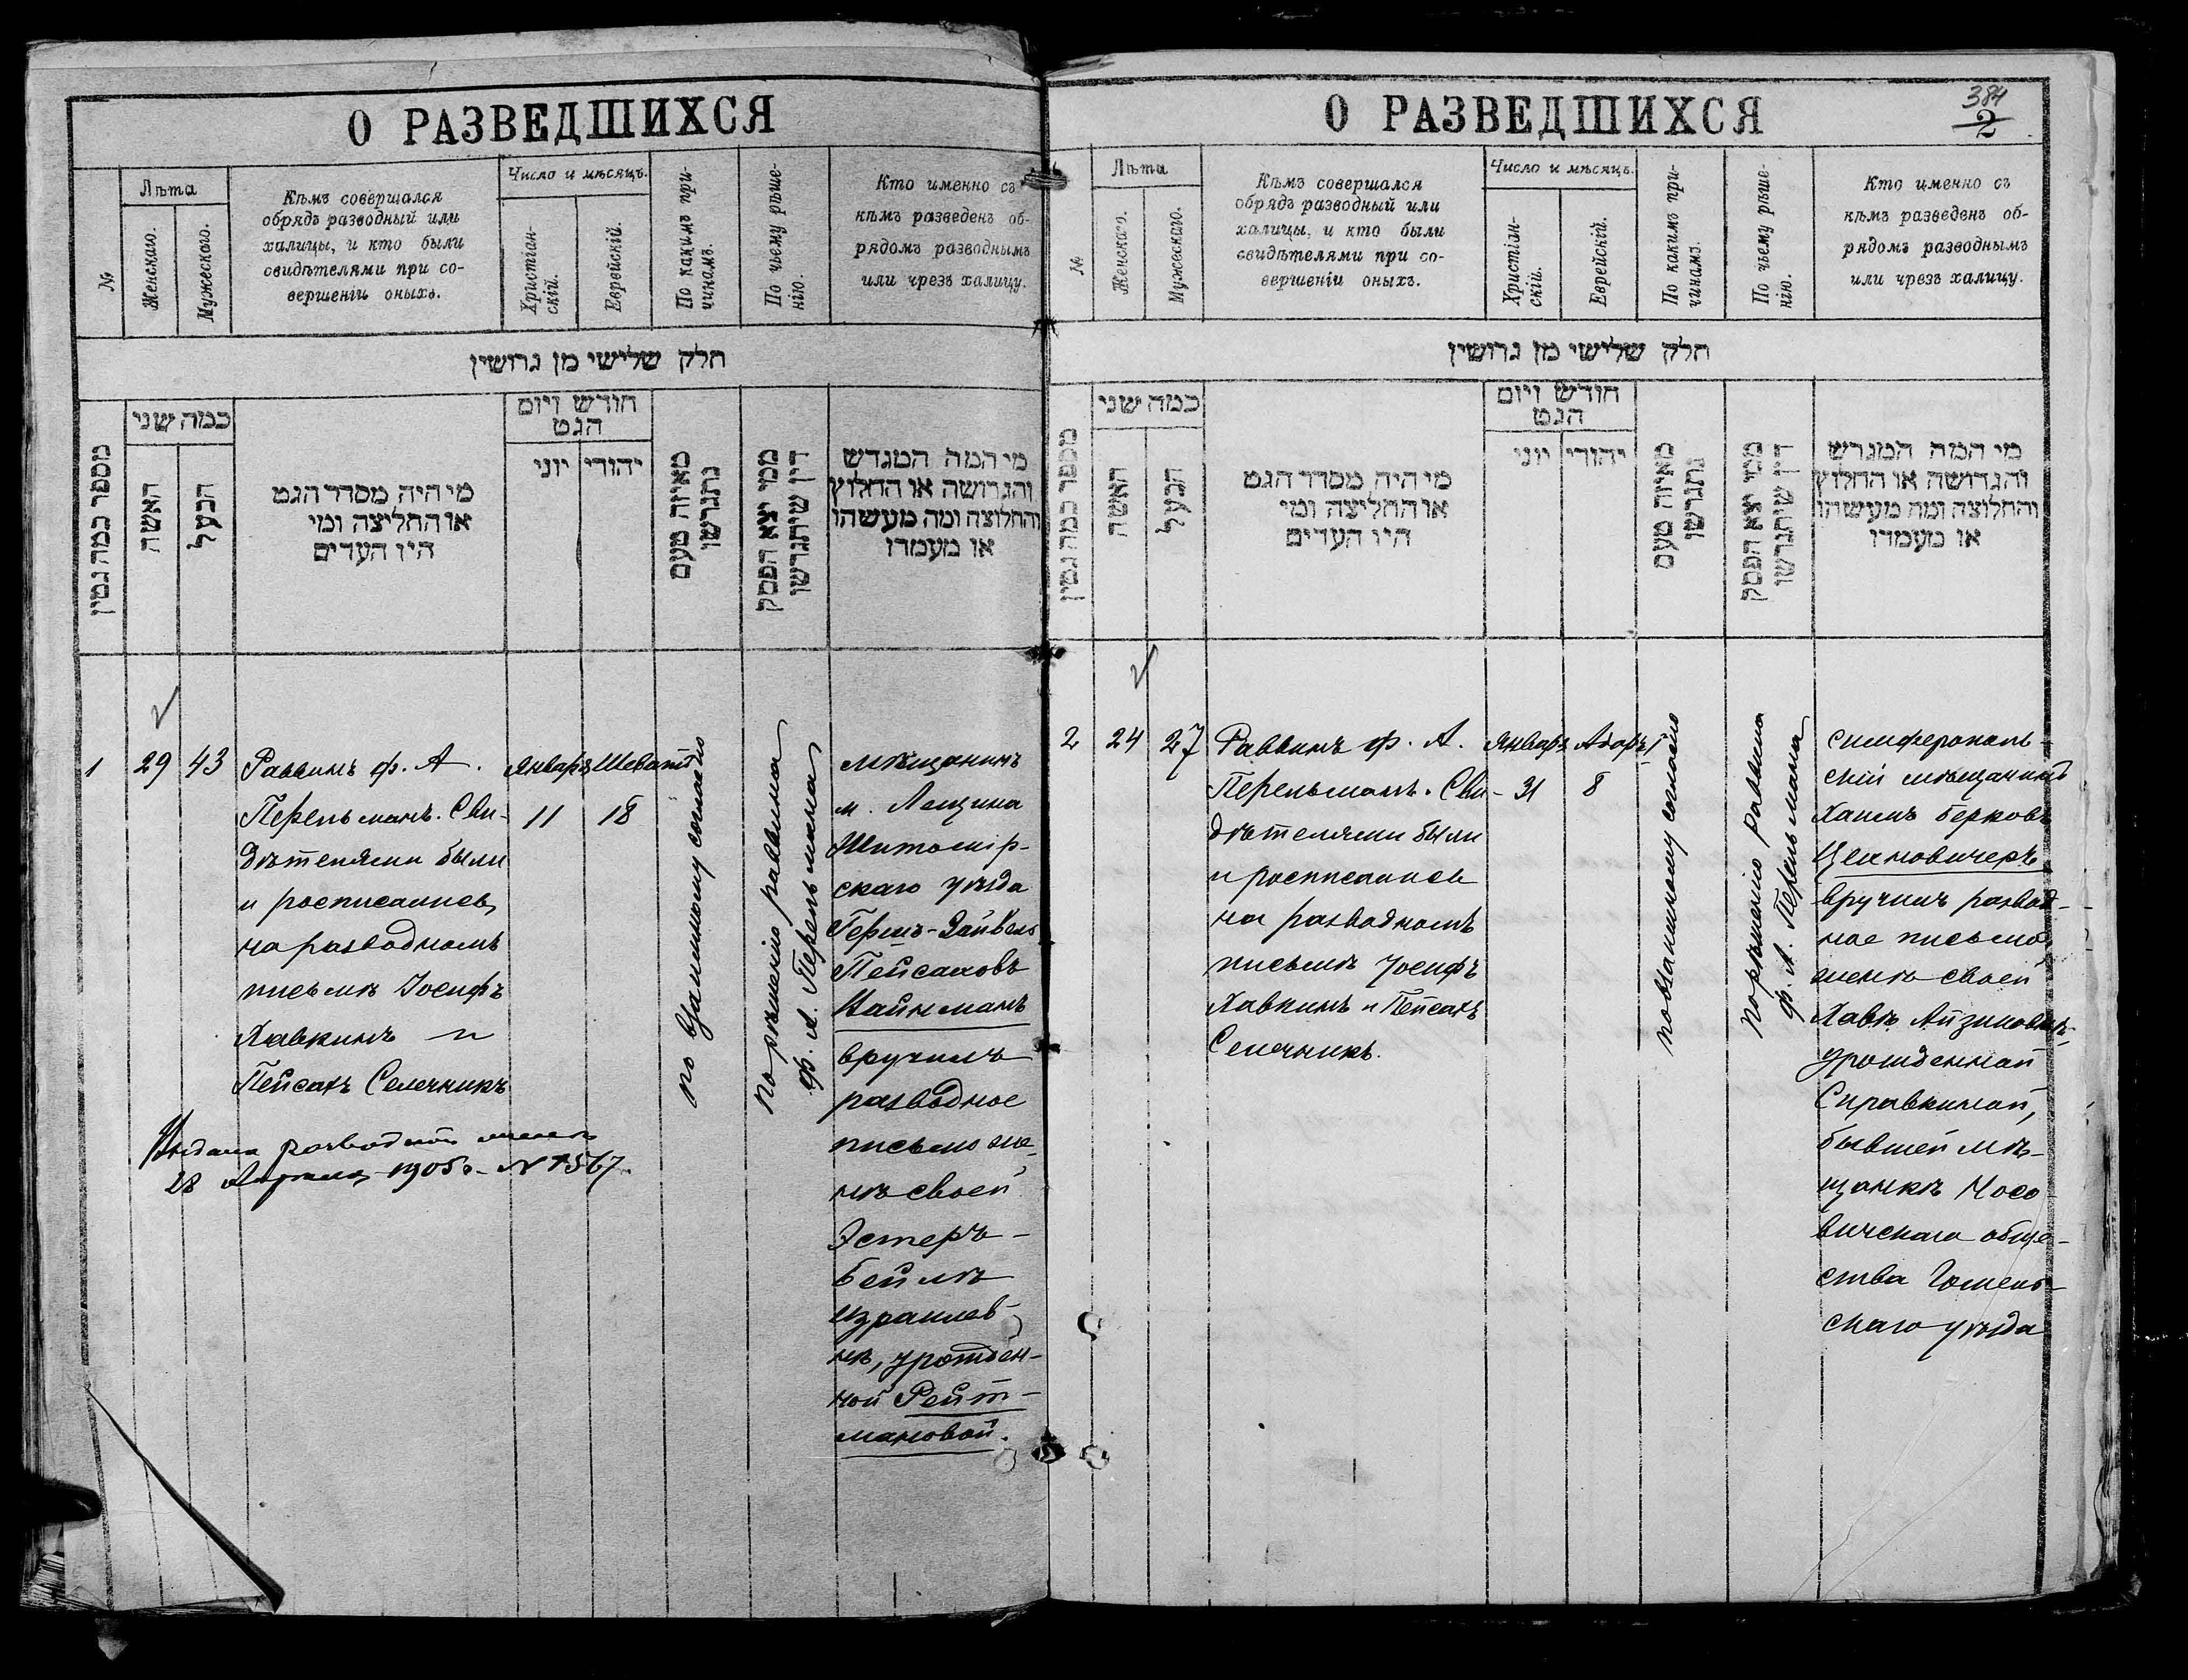 О РАЗВЕДШИХСЯ
№
Лѣта
Женскаго.
Мужескаго.
Кѣмъ совершался
обрядъ разводный или
халицы, и кто были
свидѣтелями при со-
вершеніи оныхъ.
Число и мѣсяцъ.
Христіан-
скій.
Еврейскій.
По какимъ при-
чинамъ.
По чьему рѣше-
нію.
Кто именно съ
кѣмъ разведенъ об-
рядомъ разводнымъ
или чрезъ халицу.
חלק שלישי מן גרושין
מספר כמה גטין
כמה שני
האשה
הבעל
מי היה מסדר הגט
או החליצה ומי
היו העדים
חודש ויום
הגט
יוני
יהודי
מאיזה טעם
נתגרשו
ממי יצא הפסק
דין שיתגרשו
מי המה המגרש
והגרושה או החלוץ
והחלוצה ומה מעשהו
או מעמדו
1
29
43
Раввинъ ф. А.
Перельманъ. Сви-
дѣтелями были
и росписались
на разводномъ
письмѣ Іосифъ
Хавкинъ и
Пейсахъ Селечникъ
Январь
11
Шеватъ
18
по взаимному согласію
по рѣшенію раввина
ф. А. Перельмана
мѣщанинъ
м. Лещина
Житомір-
скаго уѣзда
Гершъ-Зайвель
Пейсаховъ
Вайнманъ
вручилъ
разводное
письмо же-
нѣ своей
Эстеръ-
Бейлѣ
Израилев-
нѣ, урожден-
ной Рейт-
мановой.
28 Апрѣля 1905 г. № 1567.
О РАЗВЕДШИХСЯ
384
2
№
Лѣта
Женскаго.
Мужескаго.
Кѣмъ совершался
обрядъ разводный или
халицы, и кто были
свидѣтелями при со-
вершеніи оныхъ.
Число и мѣсяцъ.
Христіан-
скій.
Еврейскій.
По какимъ при-
чинамъ.
По чьему рѣше-
нію.
Кто именно съ
кѣмъ разведенъ об-
рядомъ разводнымъ
или чрезъ халицу.
חלק שלישי מן גרושין
מספר כמה גטין
כמה שני
האשה
הבעל
מי היה מסדר הגט
או החליצה ומי
היו העדים
חודש ויום
הגט
יוני
יהודי
מאיזה טעם
נתגרשו
ממי יצא הפסק
דין שיתגרשו
מי המה המגרש
והגרושה או החלוץ
והחלוצה ומה מעשהו
או מעמדו
2
24
27
Раввинъ ф. А.
Перельманъ. Сви-
дѣтелями были
и росписались
на разводномъ
письмѣ Іосифъ
Хавкинъ и Пейсахъ
Селечникъ.
Январь
31
Адаръ I
8
по взаимному согласію
по рѣшенію раввина
ф. А. Перельмана
симферополь-
скій мѣщанинъ
Хаимъ Берковъ
Цехновичеръ
вручилъ развод-
ное письмо
женѣ своей
Хавѣ Айзиковнѣ
урожденной
Справкиной,
бывшей мѣ-
щанкѣ Носо-
вичскаго обще-
ства Гомель-
скаго уѣзда